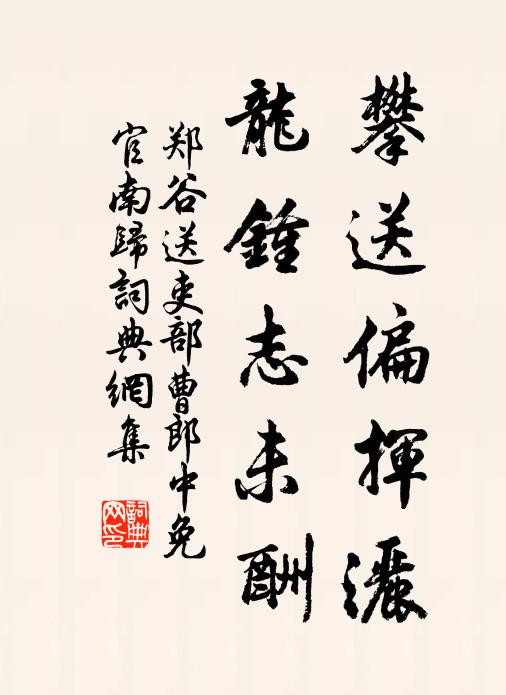 攀送偏揮灑
龍鍾志未酬
郑谷送吏部曹郎中免
官南歸詞典網集
詞典
网印